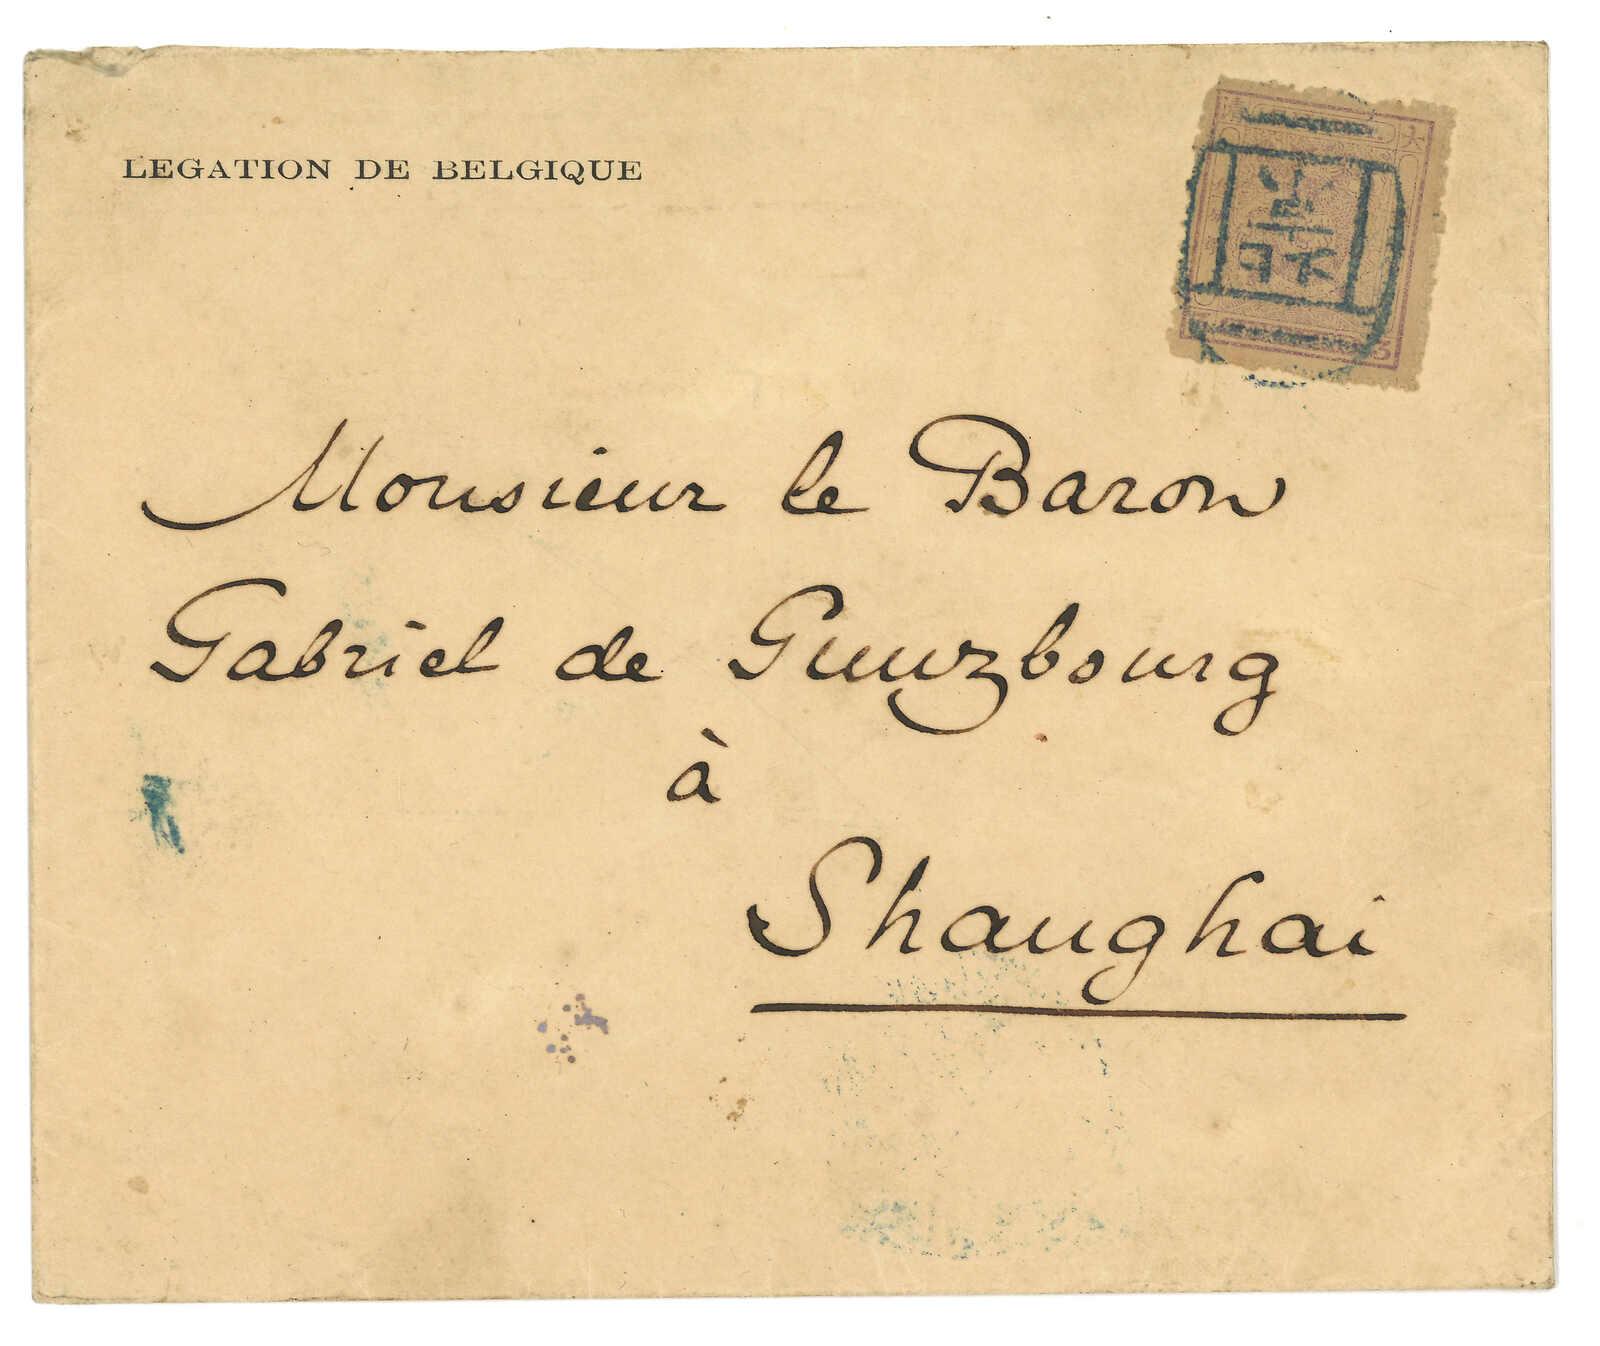 LEGATION DE BELGIQUE
大
京都
5
Monsieur le Baron
Gabriel de Gunzbourg
à
Shanghai